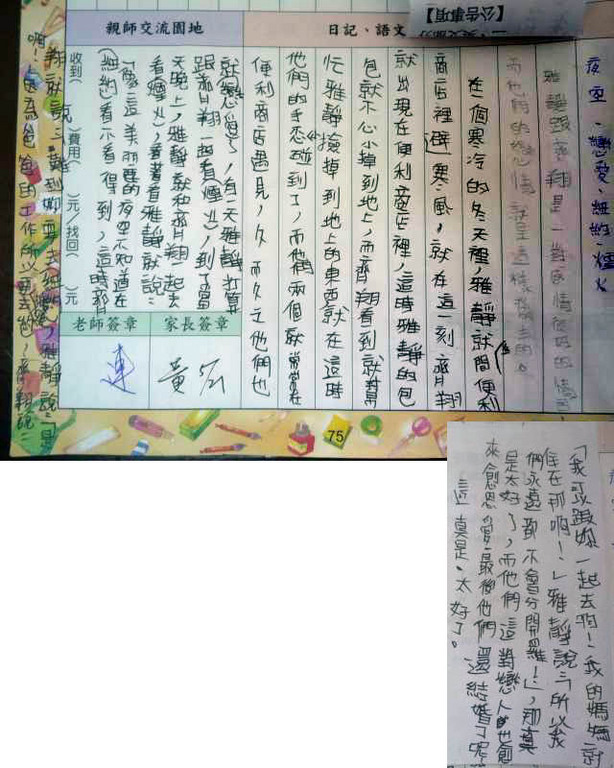 【公告事項】
日記、語文
親師交流園地
夜空、戀愛、紐約、煙火
雅靜跟齊翔是一對感情很好的情
而他們的戀情就是這樣來的。
在一個寒冷的冬天裡，雅靜就間便利
商店裡避寒風，就在這一刻齊翔
就出現在便利商店裡，這時雅靜的包
包就不心小掉到地上，而齊翔看到就幫
忙雅靜撿掉到地上的東西就在這時
他們的手忽碰到了，而他們兩個就常常在
便利商店遇見，久而久之他們也
就戀愛了，有一天雅靜打算
跟齊翔一起看煙火，到了當
天晚上，雅靜就和齊翔一起去
看煙火，看著看雅靜就說：
「像這美麗的夜空不知道在
紐約看不看得到，這時齊
翔就說：真到妳要去紐約，雅靜說：「是
啊！因為爸爸的工作所以要去的，齊翔說：
收到：
（ ）費用（ ）元/找回（ ）元
老師簽章
家長簽章
連
黃
75
「我可以跟妳一起去啊！我的媽媽就
住在那啊！」雅靜說：「所以我
們永遠都不會分開囉！」，那真
是太好了，而他們這對戀人也愈
來愈恩愛，最後他們還結婚了呢
這真是太好了。